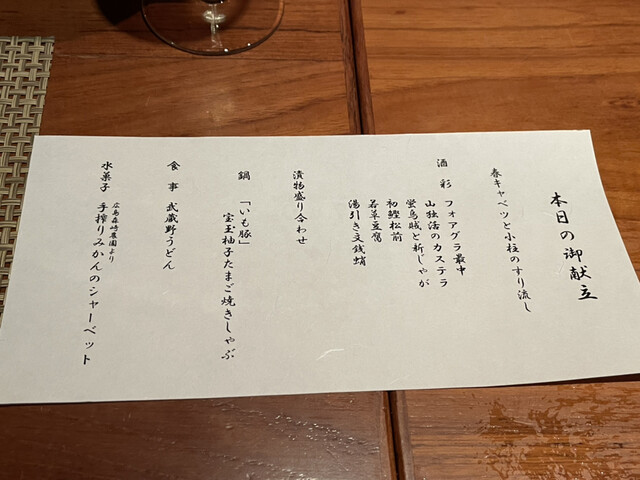 本日の御献立
春キャベツと小柱のすり流し
酒彩 フォアグラ最中
山独活のカステラ
蛍烏賊と新じゃが
初鰹松前
若草豆腐
湯引き文銭蛸
漬物盛り合わせ
鍋 「いも豚」
宝玉柚子たまご焼きしゃぶ
食事 武蔵野うどん
広島森崎農園より
水菓子 手搾りみかんのシャーベット